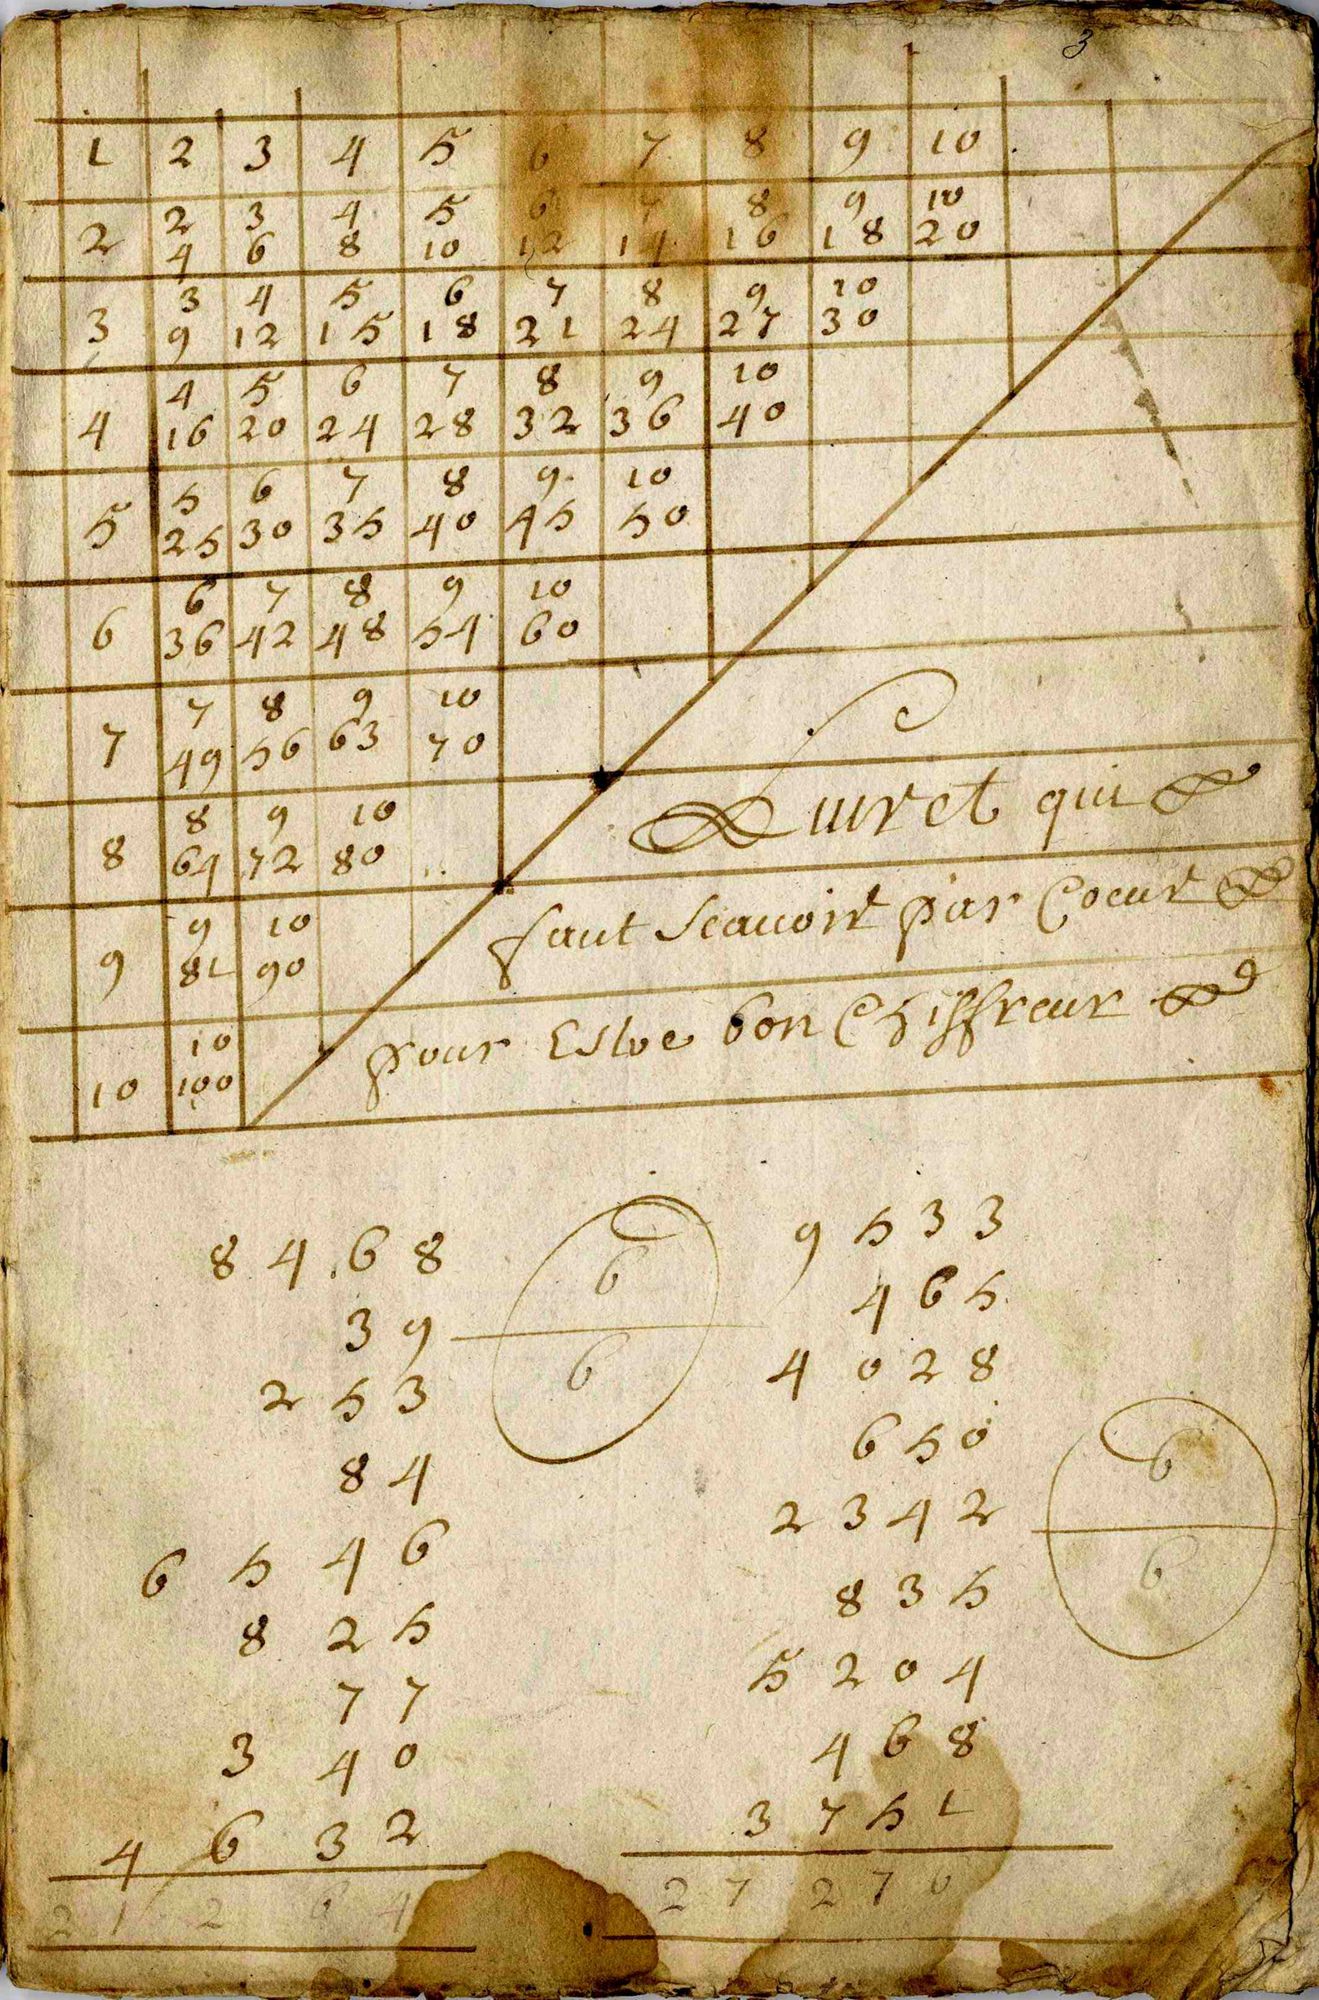 3
1 2 3 4 5 6 7 8 9 10
2 3 4 5 6 7 8 9 10
2 4 6 8 10 12 14 16 18 20
3 4 5 6 7 8 9 10
3 9 12 15 18 21 24 27 30
4 5 6 7 8 9 10
4 16 20 24 28 32 36 40
5 6 7 8 9 10
5 25 30 35 40 45 50
6 7 8 9 10
6 36 42 48 54 60
7 8 9 10
7 49 56 63 70
8 9 10
8 64 72 80
9 10
9 81 90
10
10 100
Liuret qui
faut Scauoir par Coeur
pour Estre bon Chiffreur
8468
39
253
84
6546
825
77
340
4632
21264
6
6
9533
465
4028
650
2342
835
5204
468
3751
27276
6
6